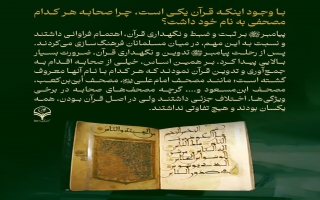 با وجود اینکه قرآن یکی است، چرا صحابه هر کدام
مصحفی به نام خود داشت؟
پیامبر ﷺ بر ثبت و ضبط و نگهداری قرآن، اهتمام فراوانی داشتند
و نسبت به این مهم، در میان مسلمانان فرهنگ‌سازی می‌کردند.
پس از رحلت پیامبر ﷺ تدوین و نگهداری قرآن، ضرورت بسیار
بالایی پیدا کرد. بر همین اساس، خیلی از صحابه اقدام به
جمع‌آوری و تدوین قرآن نمودند که هر کدام با نام آنها معروف
گشته است، مانند مصحف امام علی، مصحف اُبی‌بن‌کعب،
مصحف ابن‌مسعود و.... گرچه مصحف‌های صحابه در برخی
ویژگی‌ها، اختلاف جزئی داشتند ولی در اصل قرآن بودن، همه
یکسان بودند و هیچ تفاوتی نداشتند.